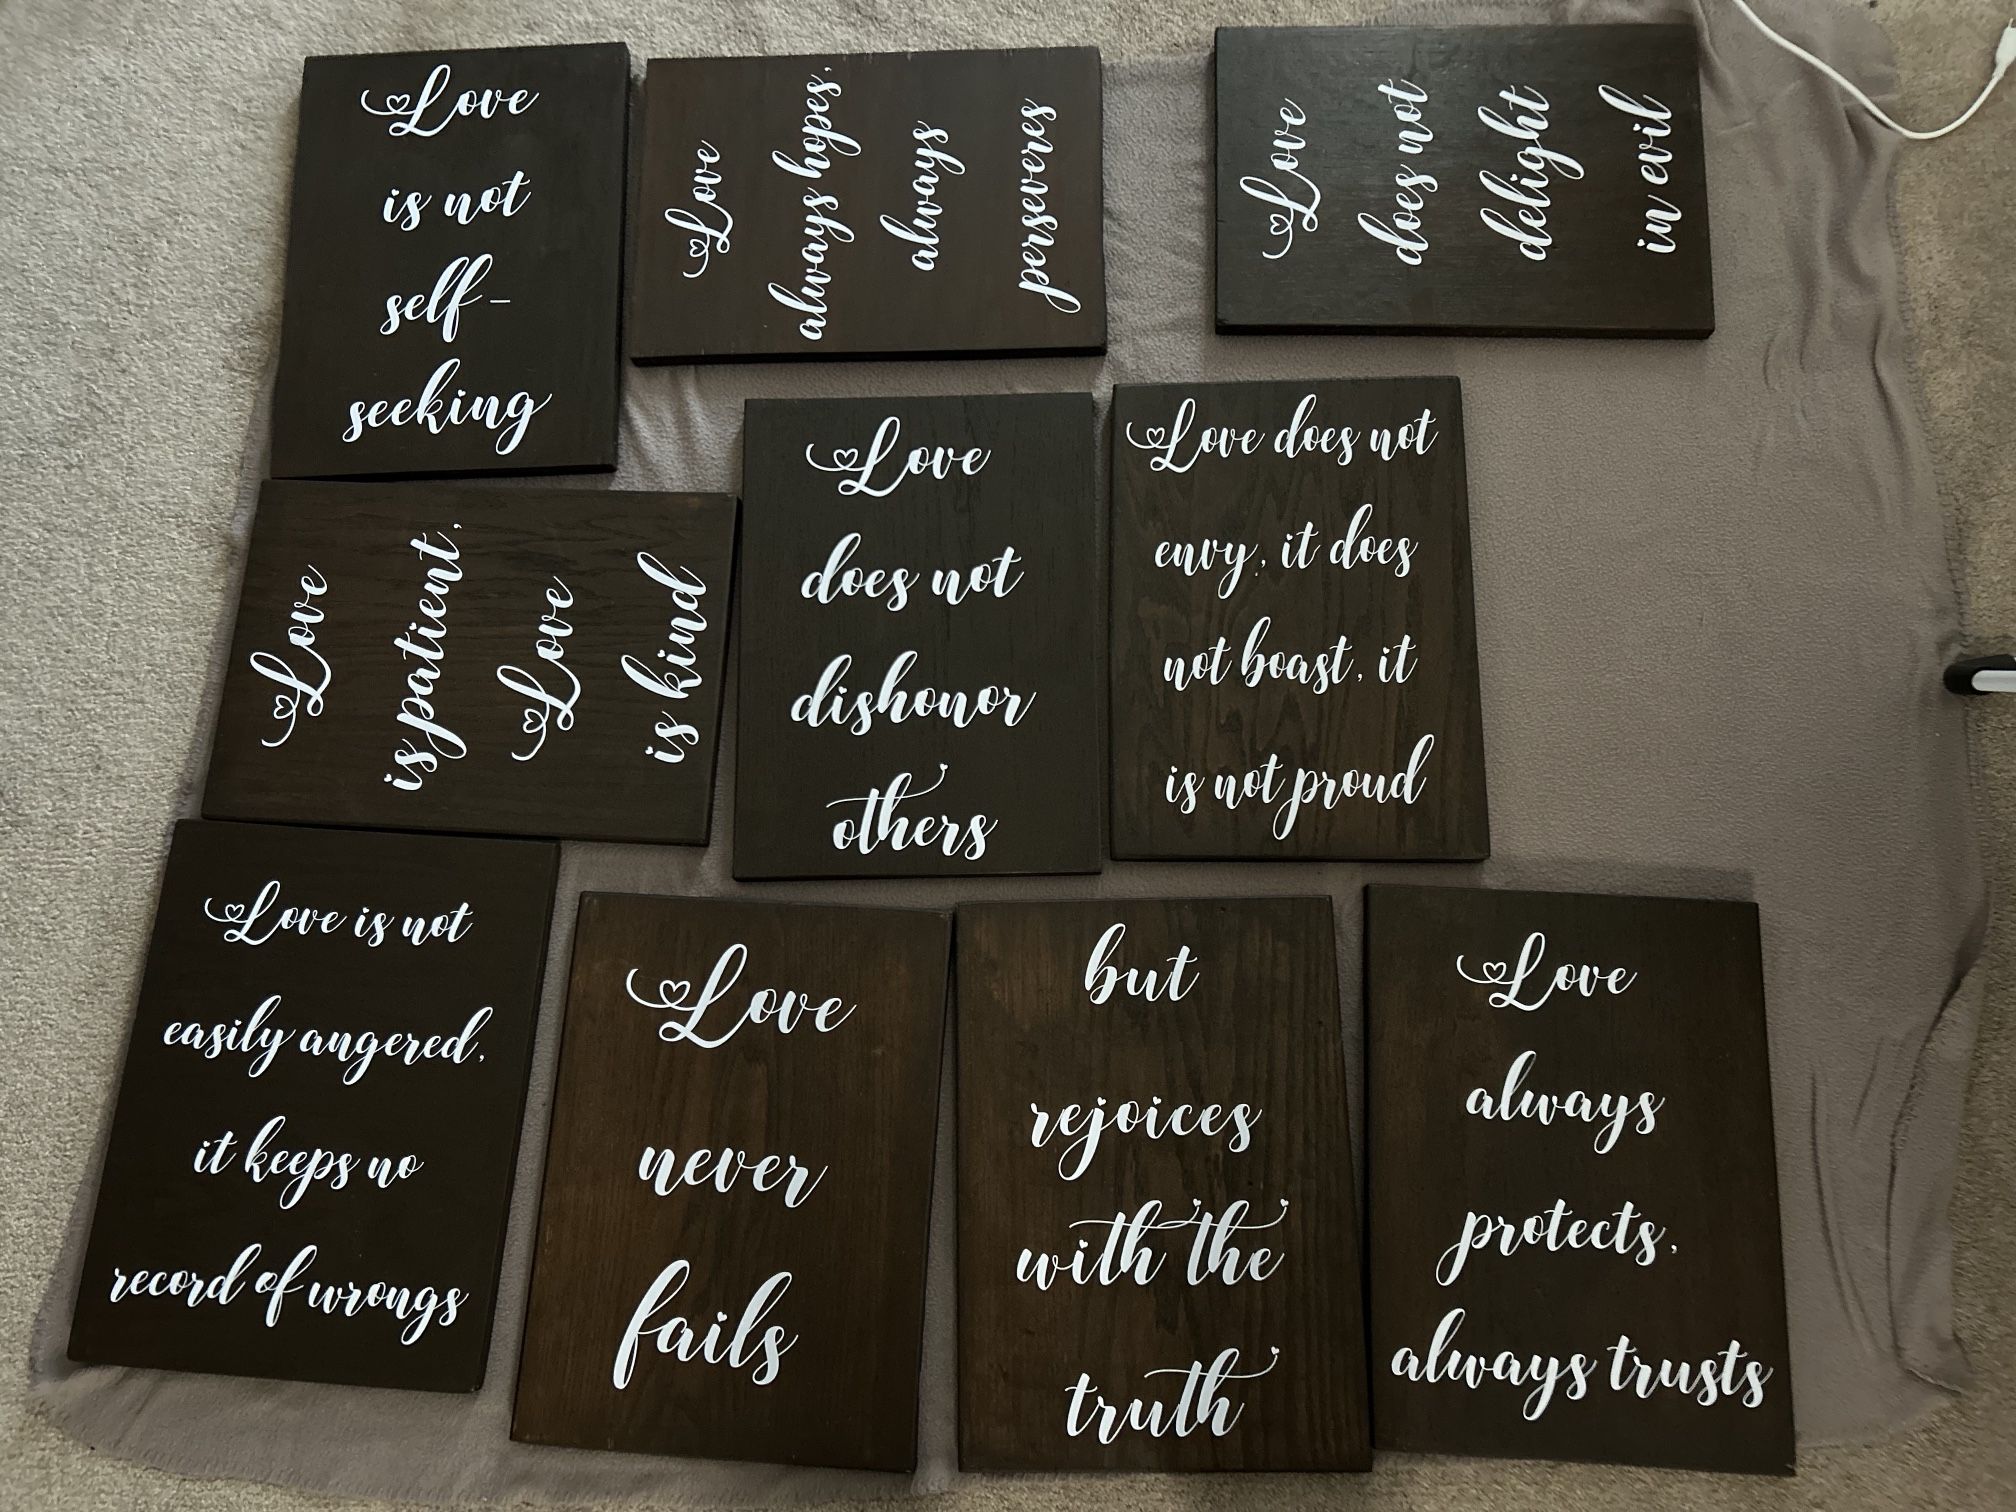 Love
is not
self-
seeking
Love
always hopes,
always
perseveres
Love
does not
delight
in evil
Love
is patient,
Love
is kind
Love
does not
dishonor
others
Love does not
envy, it does
not boast, it
is not proud
Love is not
easily angered,
it keeps no
record of wrongs
Love
never
fails
but
rejoices
with the
truth
Love
always
protects,
always trusts